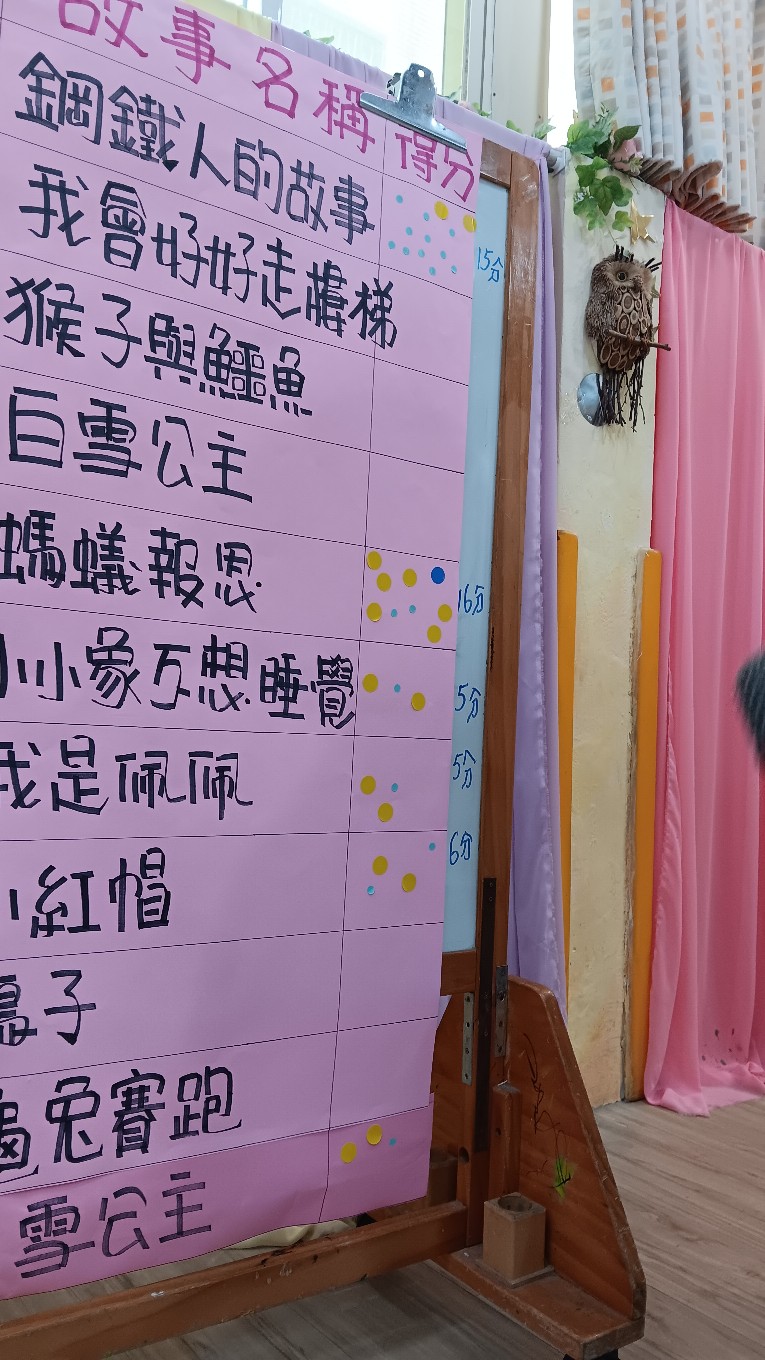 故事名稱 得分
鋼鐵人的故事
15分
我會好好走樓梯
猴子與鱷魚
白雪公主
螞蟻報恩
16分
小小象不想睡覺
5分
我是佩佩
5分
小紅帽
6分
子
龜兔賽跑
雪公主